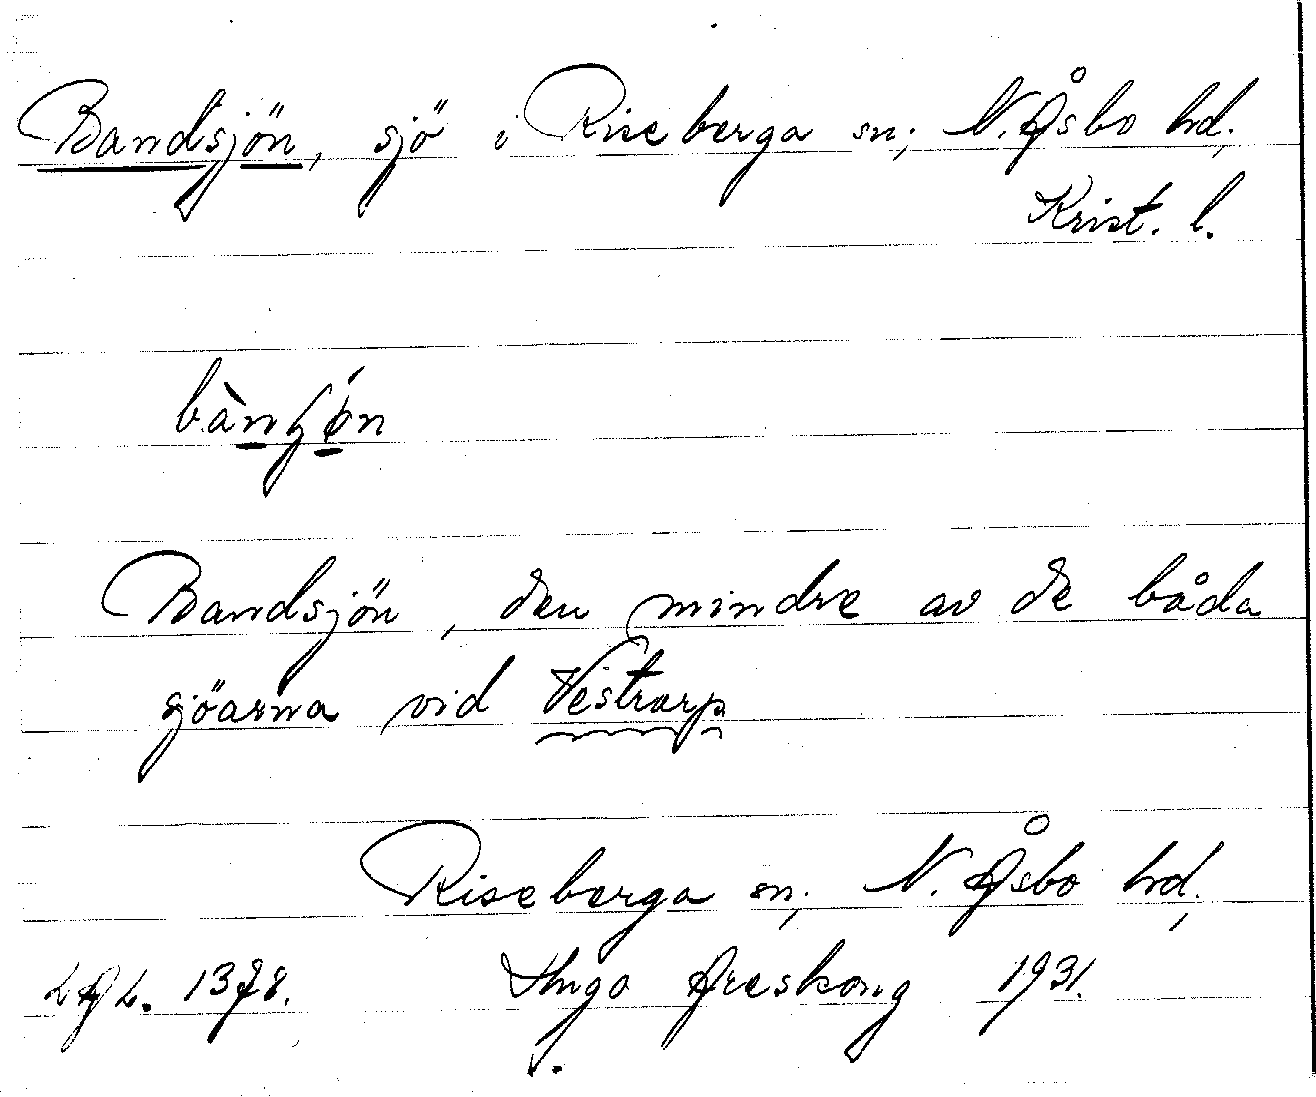 Bandsjön, sjö i Riseberga sn; N. Åsbo hd;
Krist. l.
Bandsjön, den mindre av de båda
sjöarna vid Vestrarp
Riseberga sn; N. Åsbo hd;
LAL. 1378. Hugo Areskoug 1931.